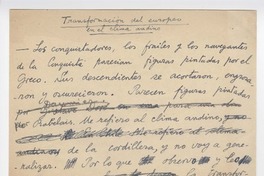 Transformación del europeo
en el clima andino
— Los conquistadores, los frailes y los navegantes
de la Conquista parecían figuras pintadas por el
Greco. Sus descendientes se acortaron, engrosa-
ron y oscurecieron. Parecen figuras pintadas
por Rabelais. Me refiero al clima andino,
de la cordillera, y no voy a gene-
ralizar. Por lo que observo y leo